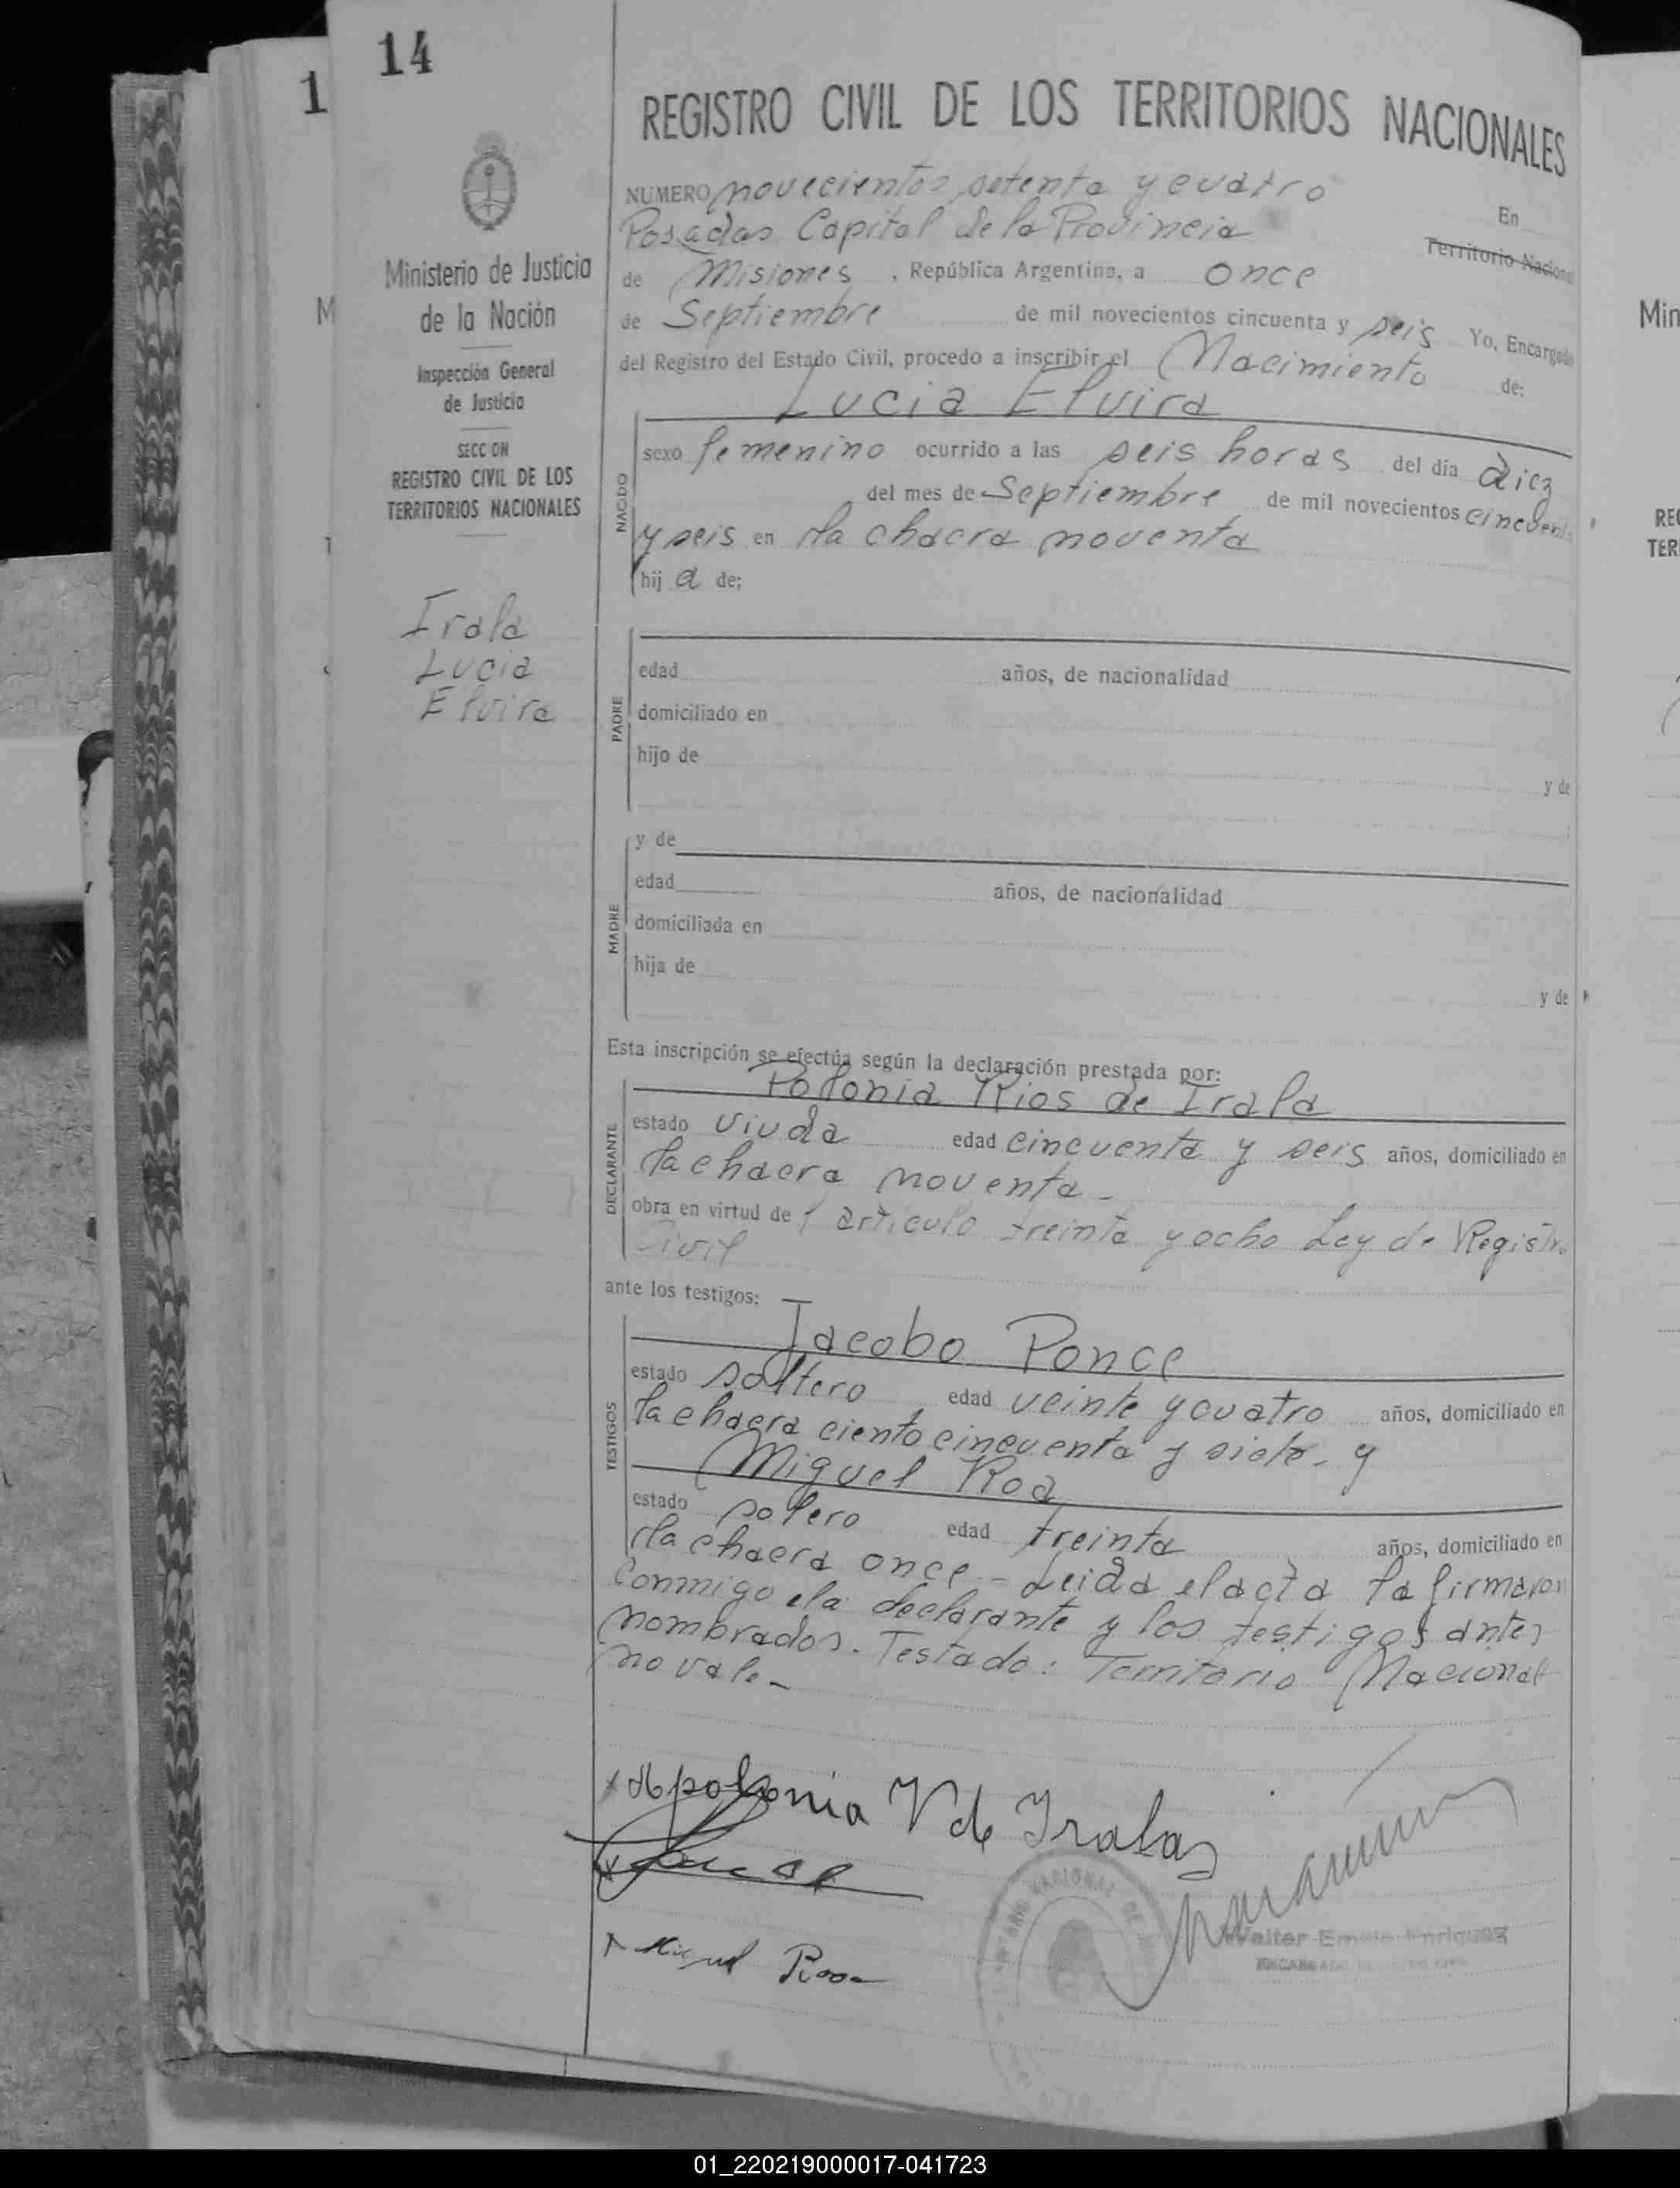 14
1
REGISTRO CIVIL DE LOS TERRITORIOS NACIONALES
NUMERO novecientos setenta y cuatro
En
Posadas Capital de la Provincia
Territorio Nacional
de Misiones, República Argentina, a once
de Septiembre de mil novecientos cincuenta y seis Yo, Encargado
del Registro del Estado Civil, procedo a inscribir el Nacimiento de:
Lucia Elvira
Ministerio de Justicia
de la Nación
Inspección General
de Justicia
SECCION
REGISTRO CIVIL DE LOS
TERRITORIOS NACIONALES
Irala
Lucia
Elvira
NACIDO
sexo femenino ocurrido a las seis horas del día diez
del mes de Septiembre de mil novecientos cincuenta
y seis en la chacra noventa
hij a de:
PADRE
edad años, de nacionalidad
domiciliado en
hijo de
y de
MADRE
y de
edad años, de nacionalidad
domiciliada en
hija de
y de
Esta inscripción se efectúa según la declaración prestada por:
DECLARANTE
Polonia Rios de Irala
estado viuda edad cincuenta y seis años, domiciliado en
la chacra noventa.
obra en virtud de l articulo treinta y ocho Ley de Registro
Civil
ante los testigos:
TESTIGOS
Jacobo Ponce
estado soltero edad veinte y cuatro años, domiciliado en
la chacra ciento cincuenta y siete. y
Miguel Roa
estado soltero edad treinta años, domiciliado en
la chacra once - Leida el acta la firmaron
conmigo la declarante y los testigos antes
nombrados. Testado: Territorio Nacional
no vale.
Apolonia V de Iralas
Miguel Roa
Walter Emilio Enriquez
Min
REG
TER
01_220219000017-041723